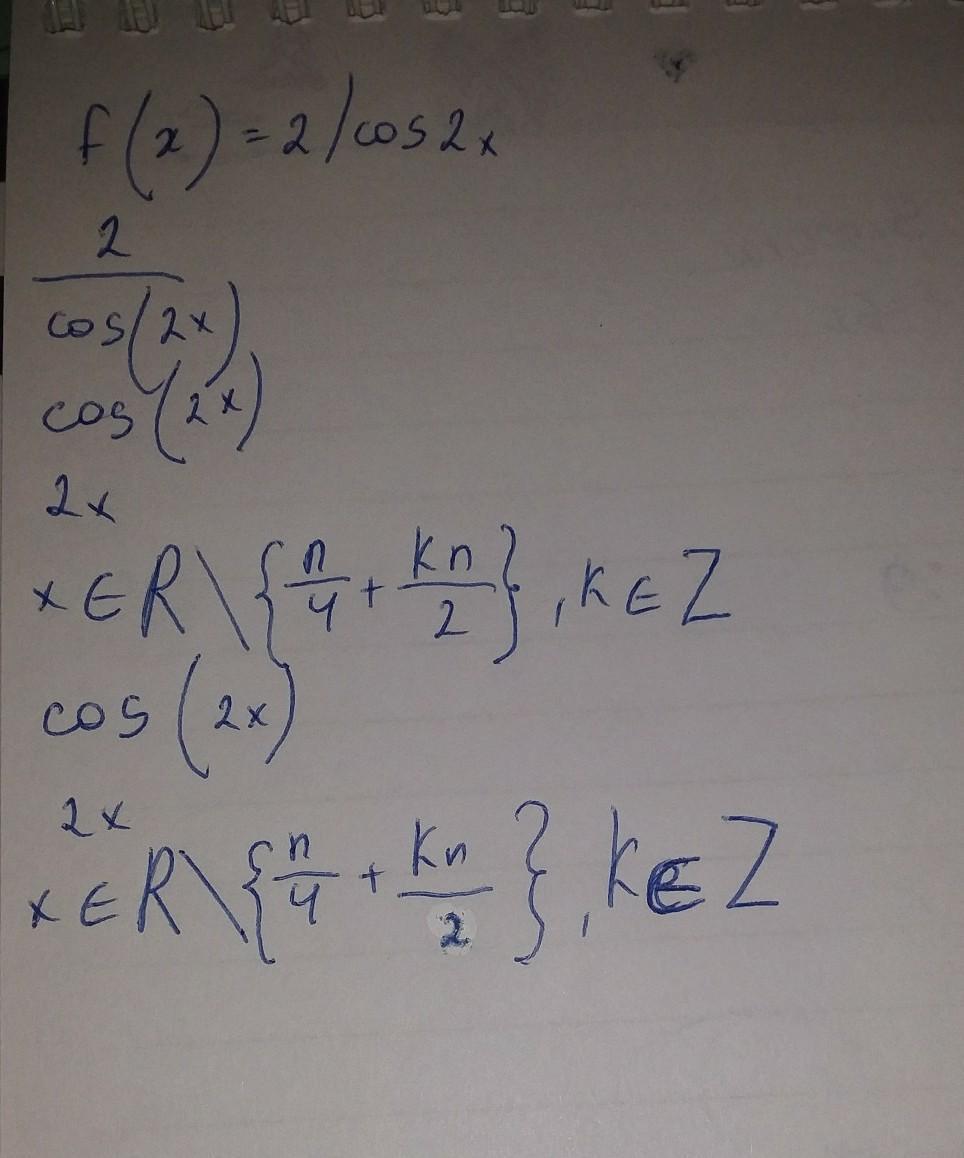 f(x)=2/cos2x
2
cos(2x)
cos(2x)
2x
x∈R\{n/4+kn/2},k∈Z
cos(2x)
2x
x∈R\{n/4+kn/2},k∈Z